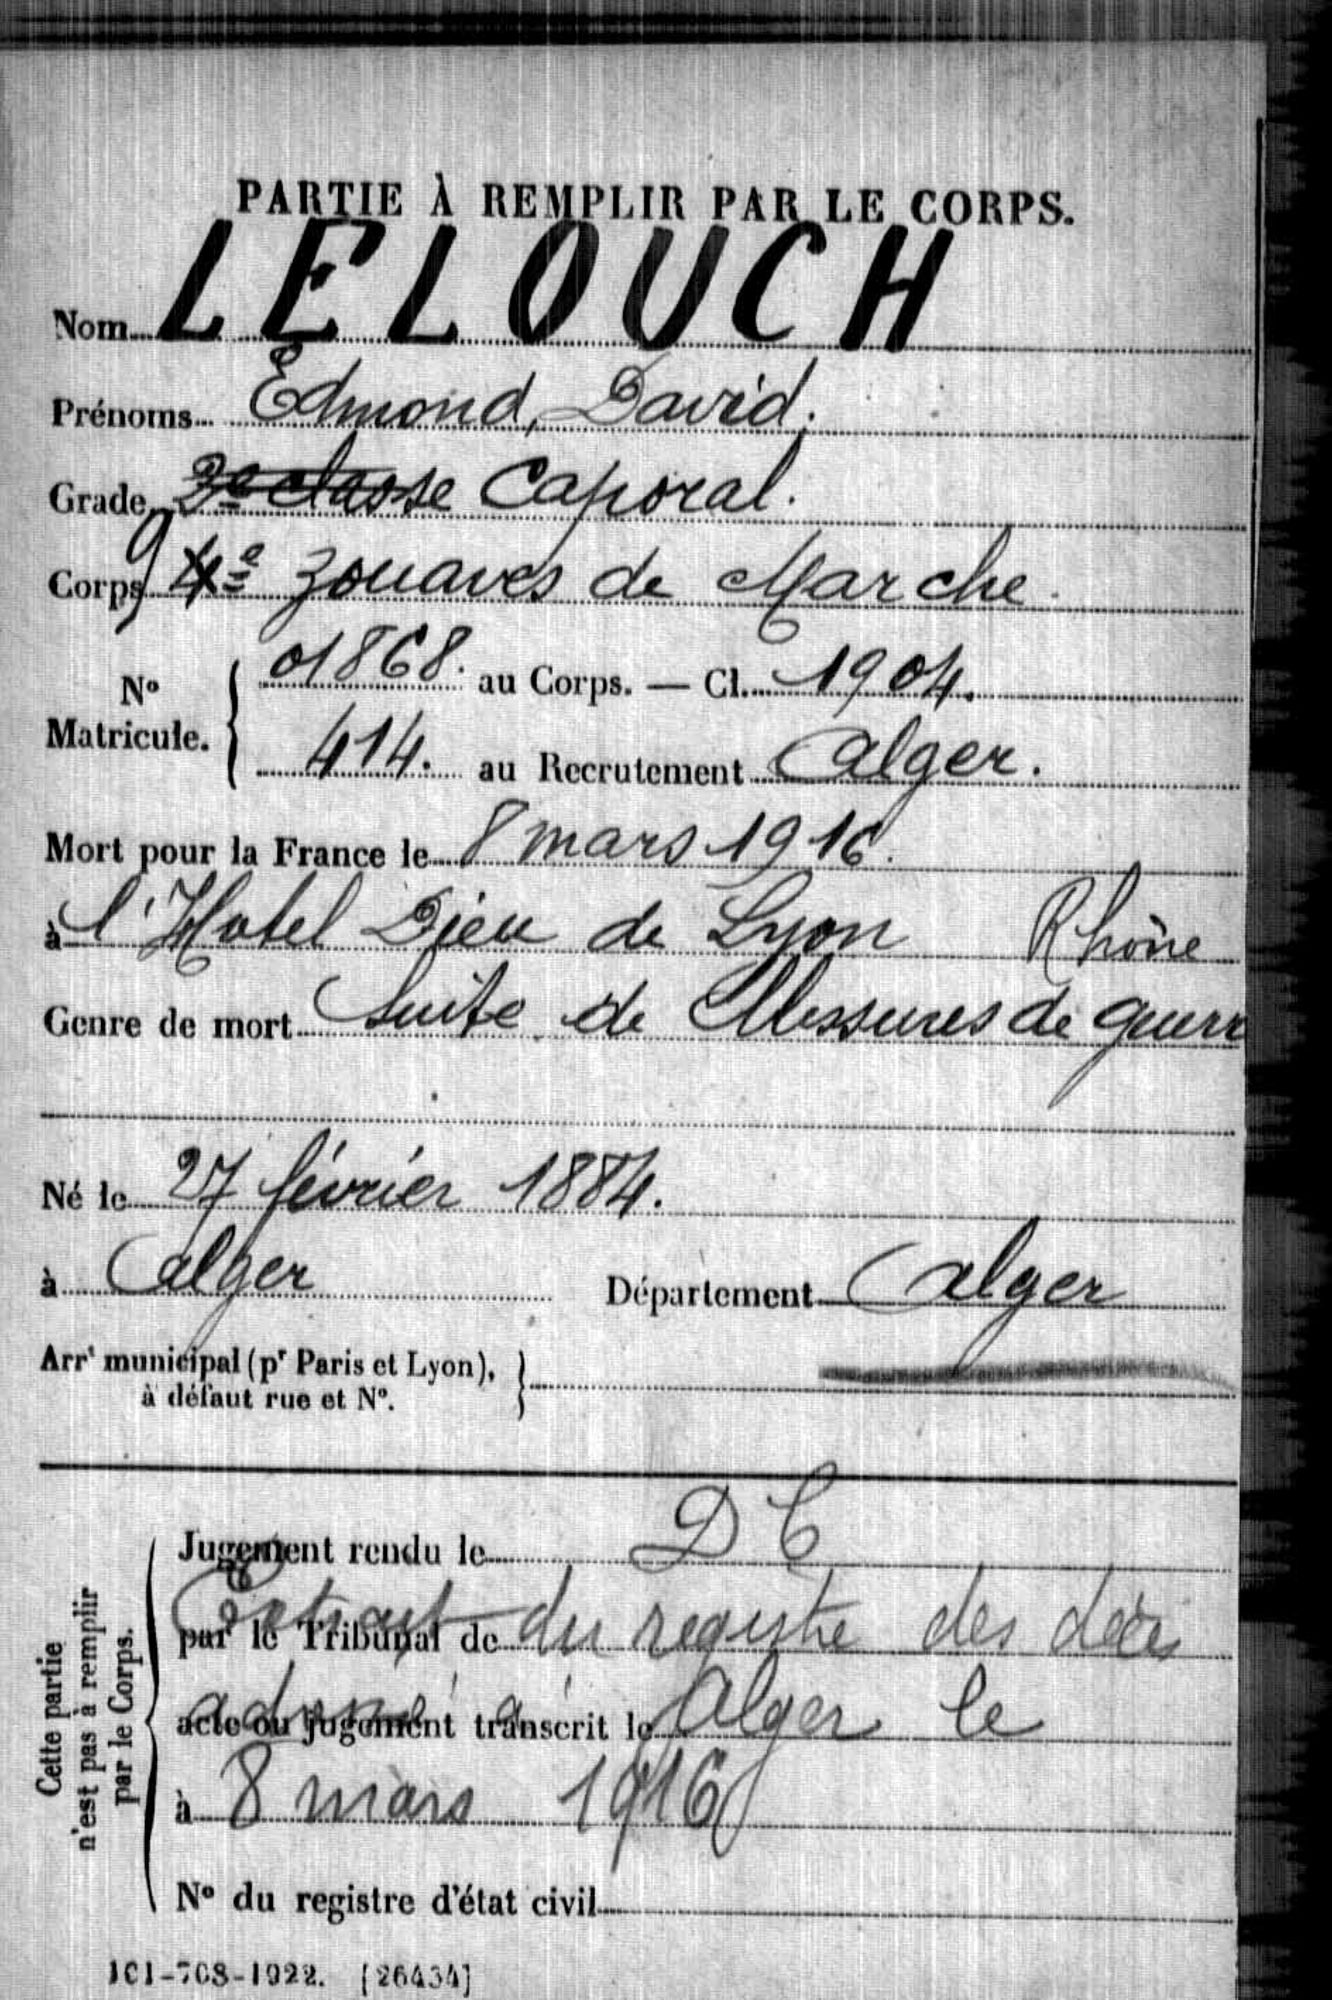 PARTIE À REMPLIR PAR LE CORPS.
Nom LELOUCH
Prénoms Edmond, David.
Grade 2e classe Caporal.
Corps 9 4e Zouaves de Marche.
N° Matricule. 01868. au Corps. — Cl. 1904.
414. au Recrutement Alger.
Mort pour la France le 8 mars 1916.
à l'Hotel Dieu de Lyon Rhône
Genre de mort Suite de Blessures de guerr
Né le 27 février 1884.
à Alger Département Alger
Arrt municipal (pr Paris et Lyon),
à défaut rue et N°.
Cette partie
n'est pas à remplir
par le Corps.
Jugement rendu le DC
par le Tribunal de Extrait du registre des décès
acte ou jugement transcrit le à Alger le
à 8 mars 1916
N° du registre d'état civil
101-708-1922. [26434]